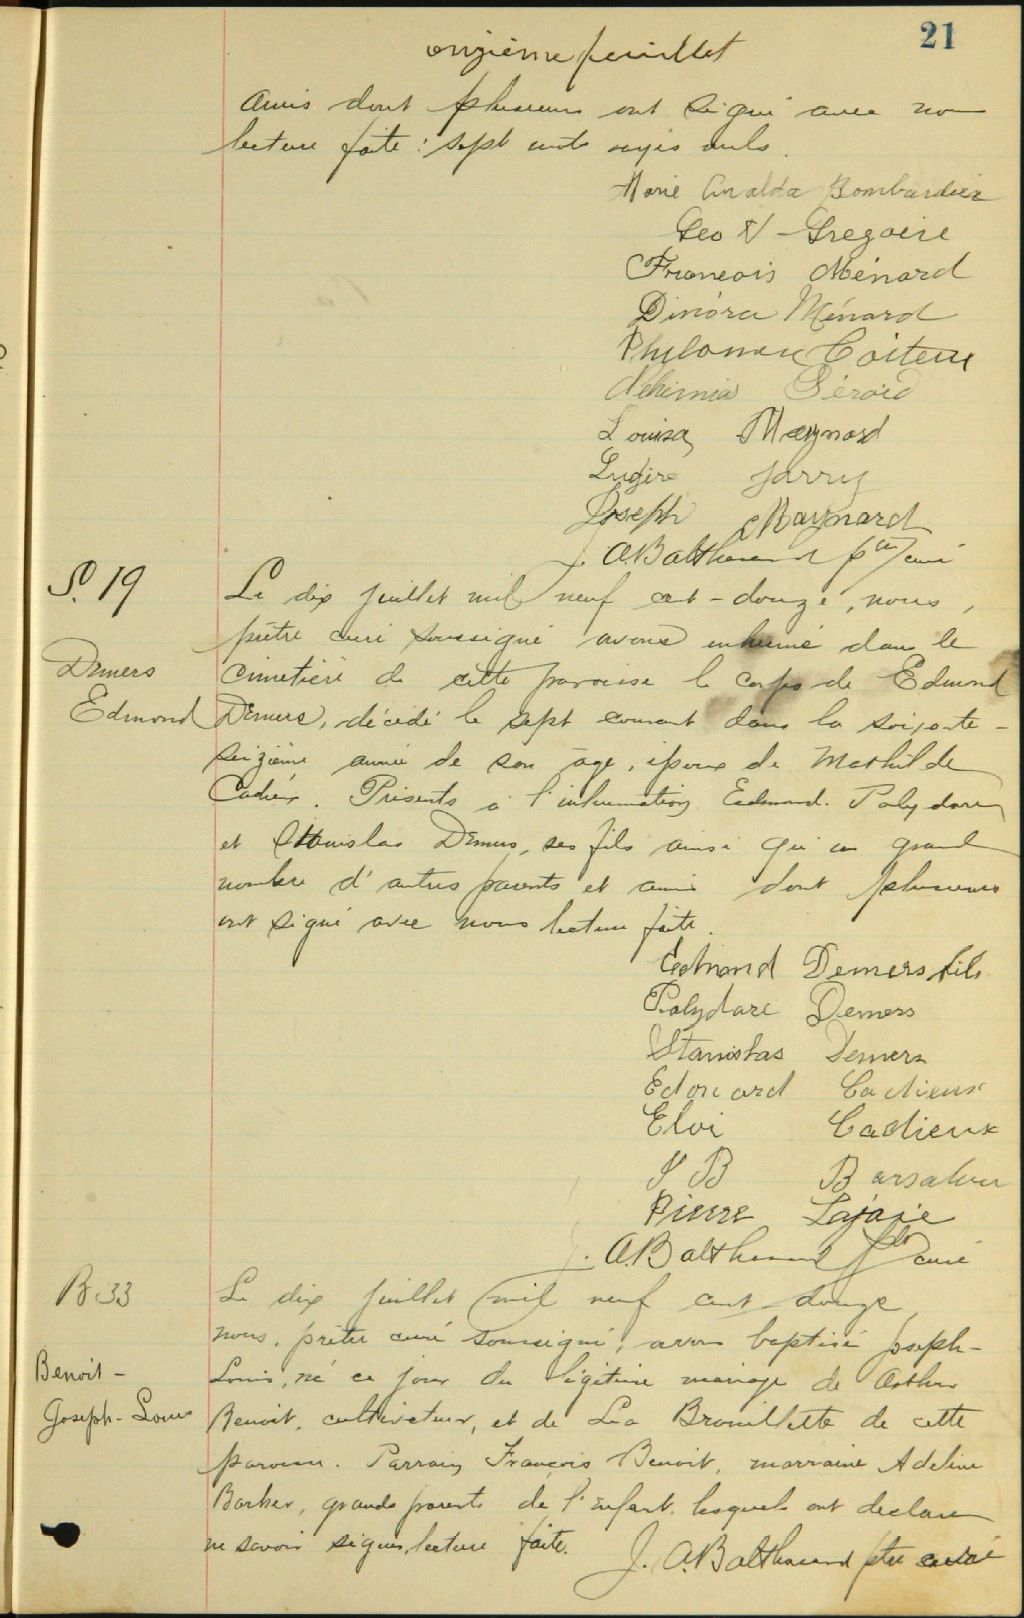 21
onzième feuillet
amis dont plusieurs ont signé avec nous
lecture faite : sept mots rayés nuls.
Marie Analda Bombardier
Geo N Gregoire
Francois Ménard
Dinora Ménard
Philomene
Louisa Maynard
Jarry
Joseph Maynard
J. A. Balthazard ptre curé
S. 19
Demers
Edmond
Le dix juillet mil neuf cent-douze, nous,
prêtre curé soussigné avons inhumé dans le
cimetière de cette paroisse le corps de Edmond
Demers, décédé le sept courant dans la soixante-
seizième année de son âge, époux de Mathilde
Cadieux. Présents à l'inhumation Edmond. Polydore
et Stanislas Demers, ses fils ainsi qu'un grand
nombre d'autres parents et amis dont plusieurs
ont signé avec nous lecture faite.
Edmond Demers fils
Polydore Demers
Stanislas Demers
Edouard Cadieux
Eloi Cadieux
J B Barsalou
Pierre Lajoie
J. A. Balthazard ptre curé
B 33
Benoit-
Joseph-Louis
Le dix juillet mil neuf cent douze
nous, prêtre curé soussigné, avons baptisé Joseph-
Louis, né ce jour du légitime mariage de Arthur
Benoit, cultivateur, et de Léa Brouillette de cette
paroisse. Parrain François Benoit, marraine Adeline
Barker, grands parents de l'enfant. lesquels ont déclaré
ne savoir signer, lecture faite.
J. A. Balthazard ptre curé